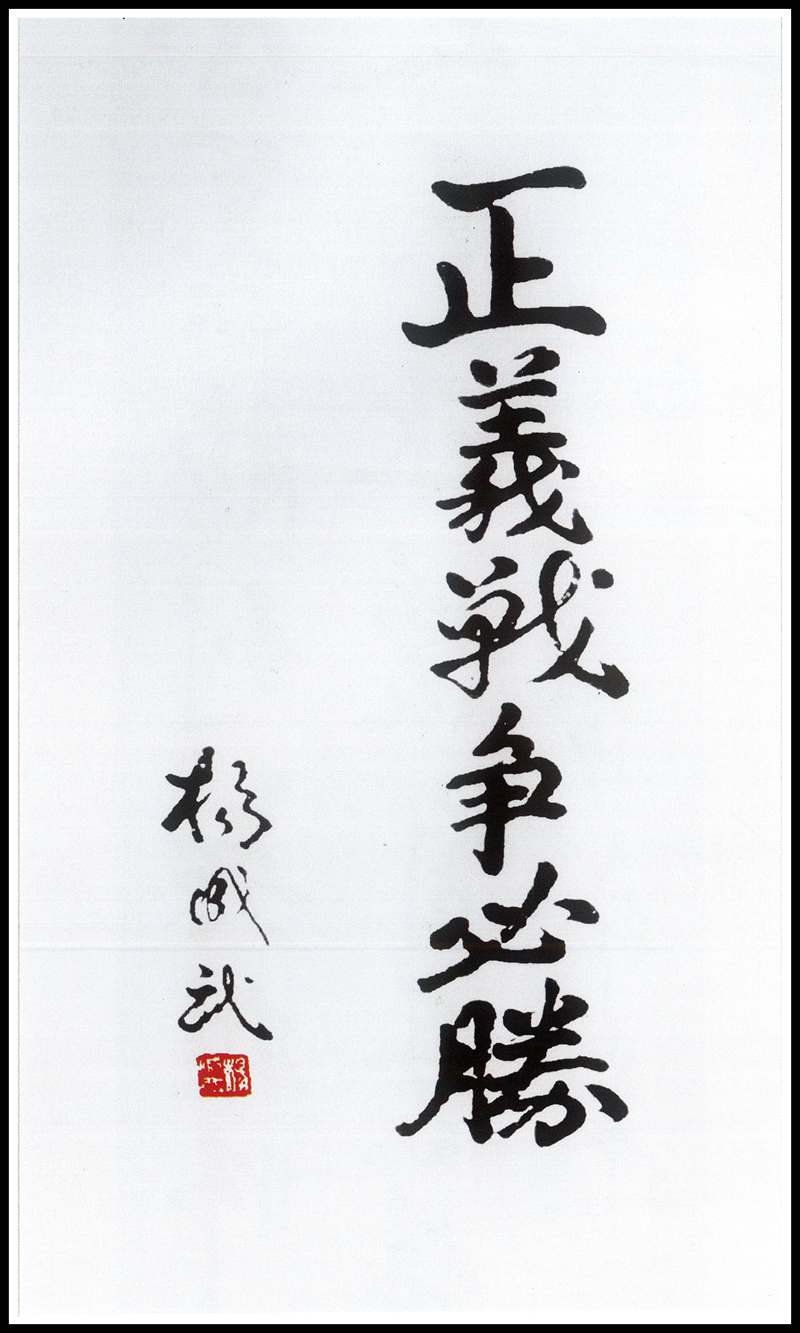 正義战争必勝
楊成武